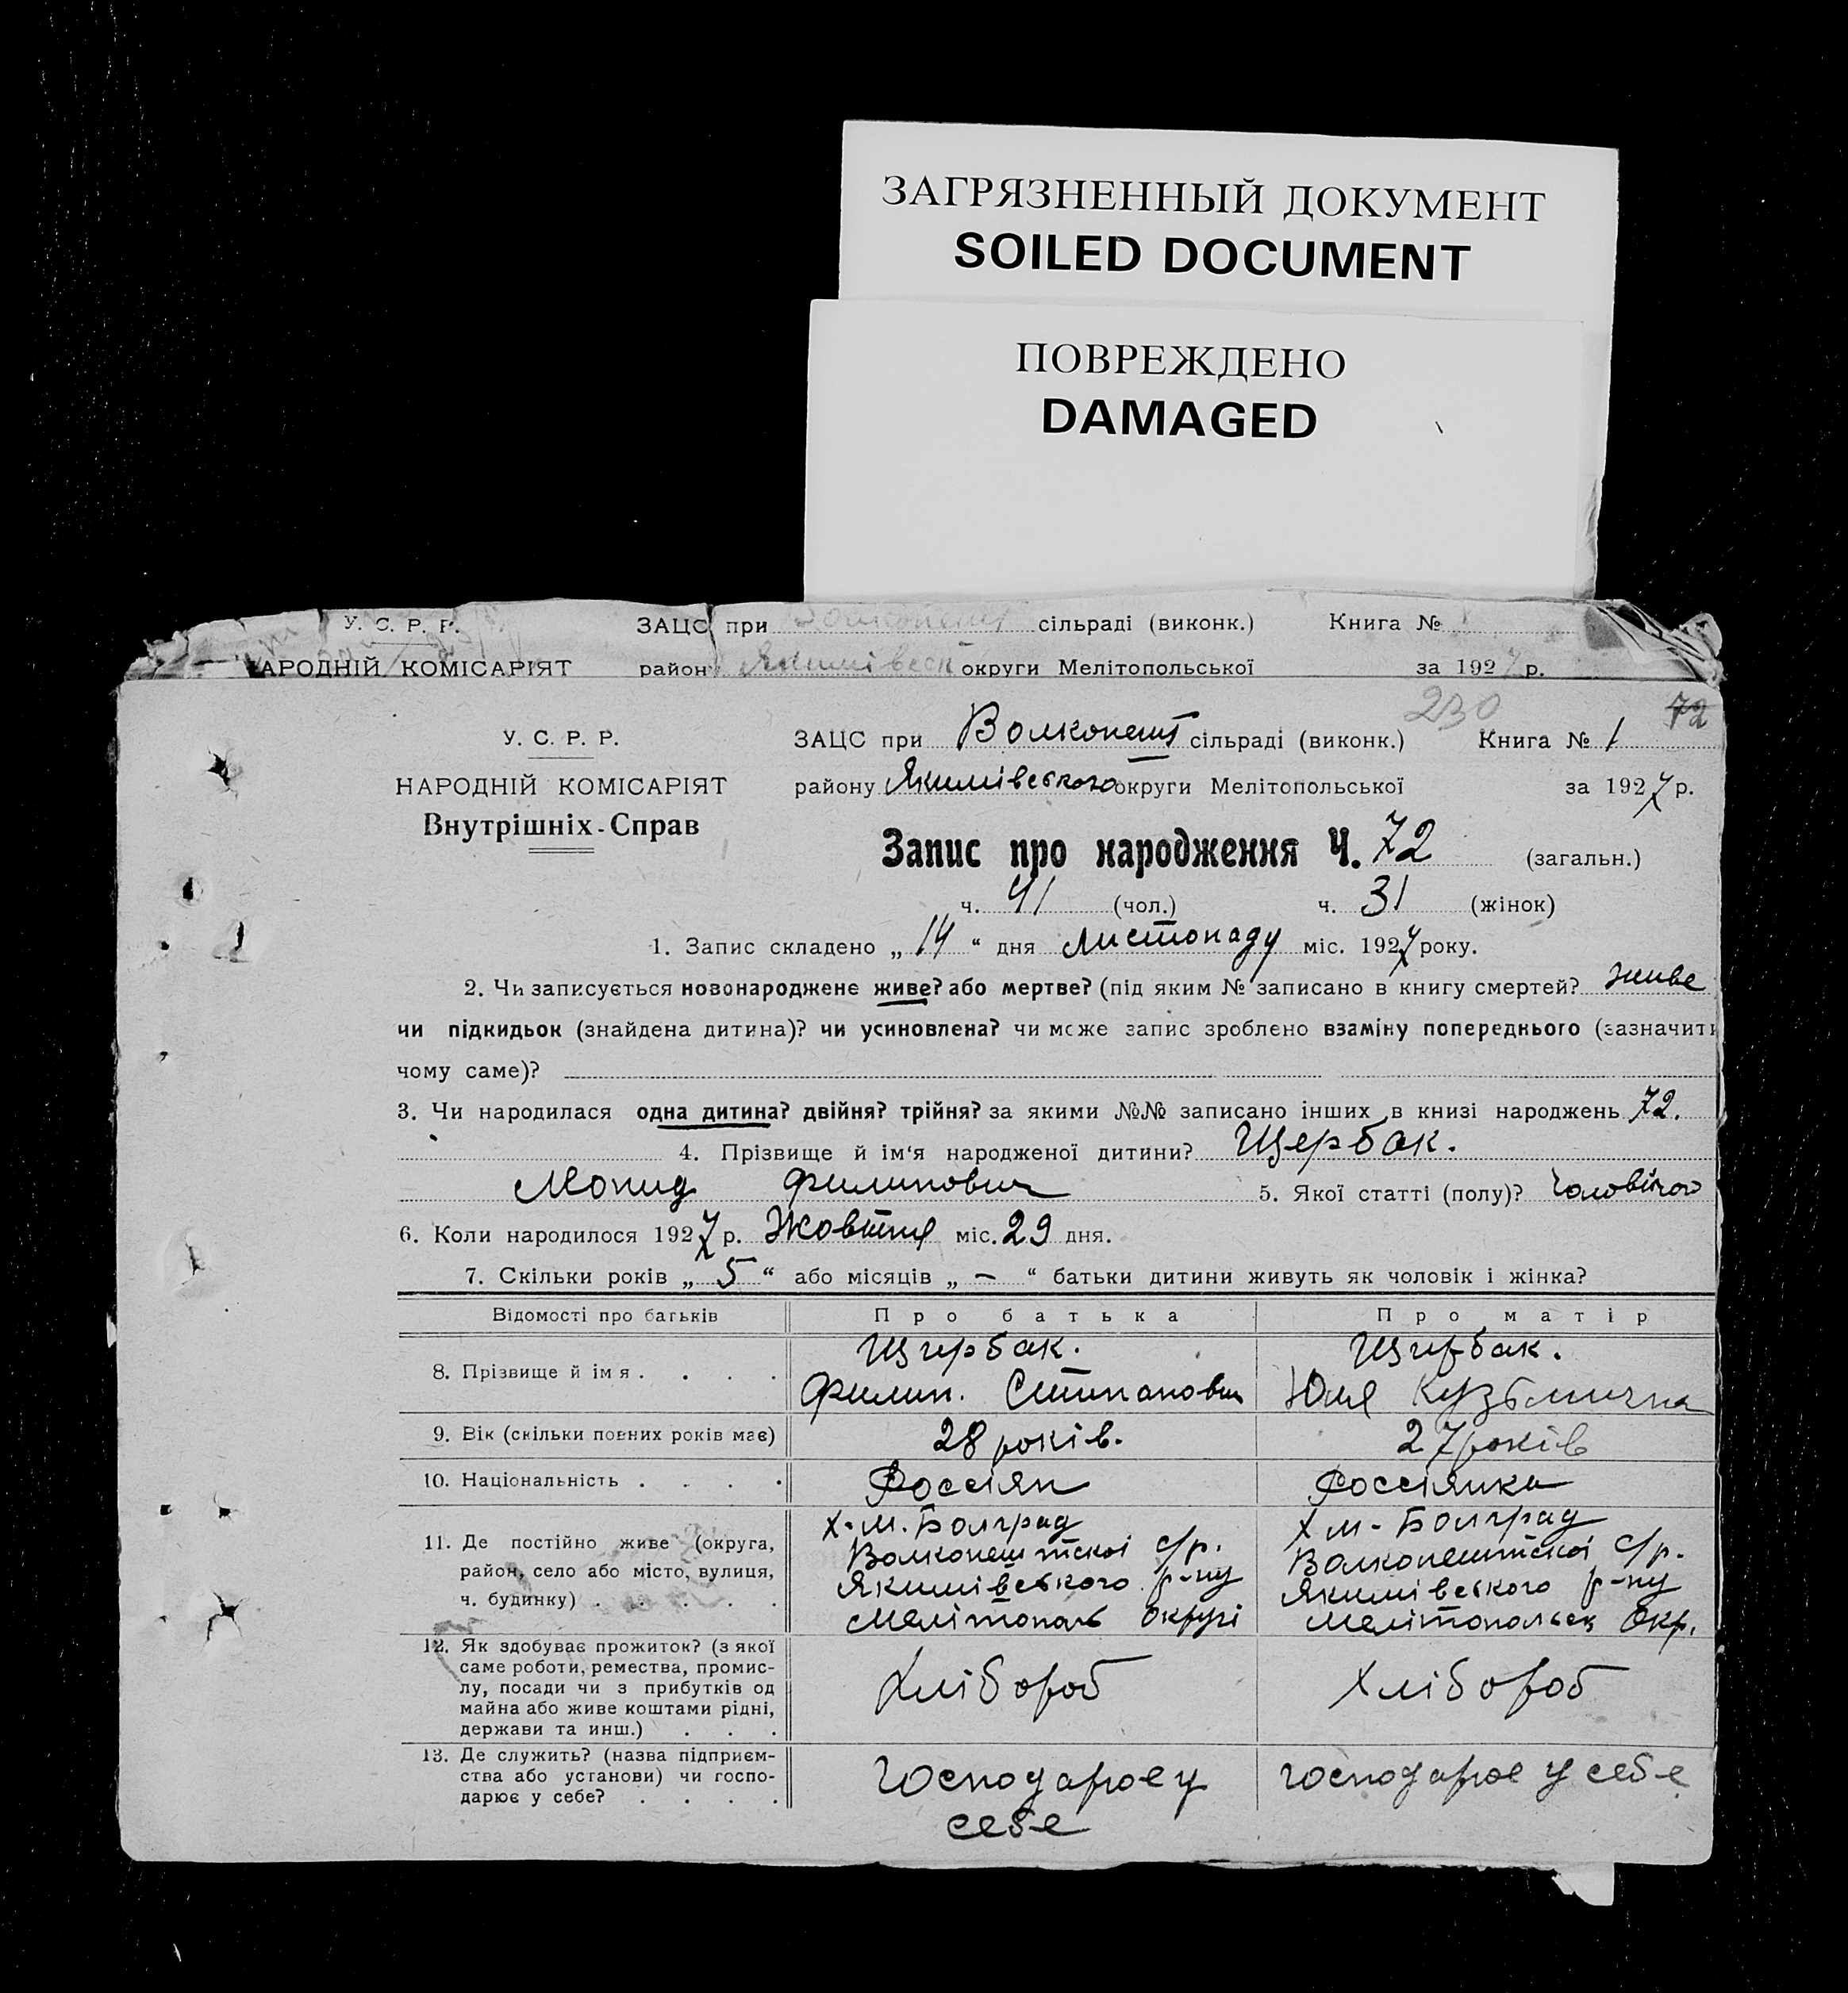 ЗАГРЯЗНЕННЫЙ ДОКУМЕНТ
SOILED DOCUMENT
ПОВРЕЖДЕНО
DAMAGED
У. С. Р. Р. ЗАЦС при Волконешт сільраді (виконк.) Книга №
АРОДНІЙ КОМІСАРІЯТ район Якимівськ округи Мелітопольської за 1927 р.
230 72
У. С. Р. Р. ЗАЦС при Волконешт сільраді (виконк.) Книга № 1
НАРОДНІЙ КОМІСАРІЯТ району Якимівського округи Мелітопольської за 1927 р.
Внутрішніх-Справ
Запис про народження Ч. 72 (загальн.)
ч. 41 (чол.) ч. 31 (жінок)
1. Запис складено „ 14 “ дня листопаду міс. 1927 року.
2. Чи записується новонароджене живе? або мертве? (під яким № записано в книгу смертей? живе
чи підкидьок (знайдена дитина)? чи усиновлена? чи може запис зроблено взаміну попереднього (зазначити
чому саме)?
3. Чи народилася одна дитина? двійня? трійня? за якими №№ записано інших в книзі народжень 72.
4. Прізвище й ім‘я народженої дитини? Щербак.
Филипович 5. Якої статті (полу)? Чоловічого
6. Коли народилося 1927 р. Жовтня міс. 29 дня.
7. Скільки років „ 5 “ або місяців „ — “ батьки дитини живуть як чоловік і жінка?
Відомості про батьків Про батька Про матір
8. Прізвище й ім я . . . . Щирбак. Щирбак.
Филип. Стипанович Юля Кузьмична
9. Вік (скільки повних років має) 28 років. 27 років
10. Національність . . . . Россіян Россіянка
11. Де постійно живе (округа, район, село або місто, вулиця, ч. будинку) . . . . .
х-м. Болград х м- Болград
Волконештскоі с/р. Волконештскоі с/р.
Якимівського р-ну Якимівського р-ну
Мелітополь округі Мелітопольск окр.
12. Як здобуває прожиток? (з якої
саме роботи, ремества, промис-
лу, посади чи з прибутків од Хлібороб Хлібороб
майна або живе коштами рідні,
держави та инш.) . . .
13. Де служить? (назва підприєм-
ства або установи) чи госпо- господарює у господарює у себе
дарює у себе? . . . . себе